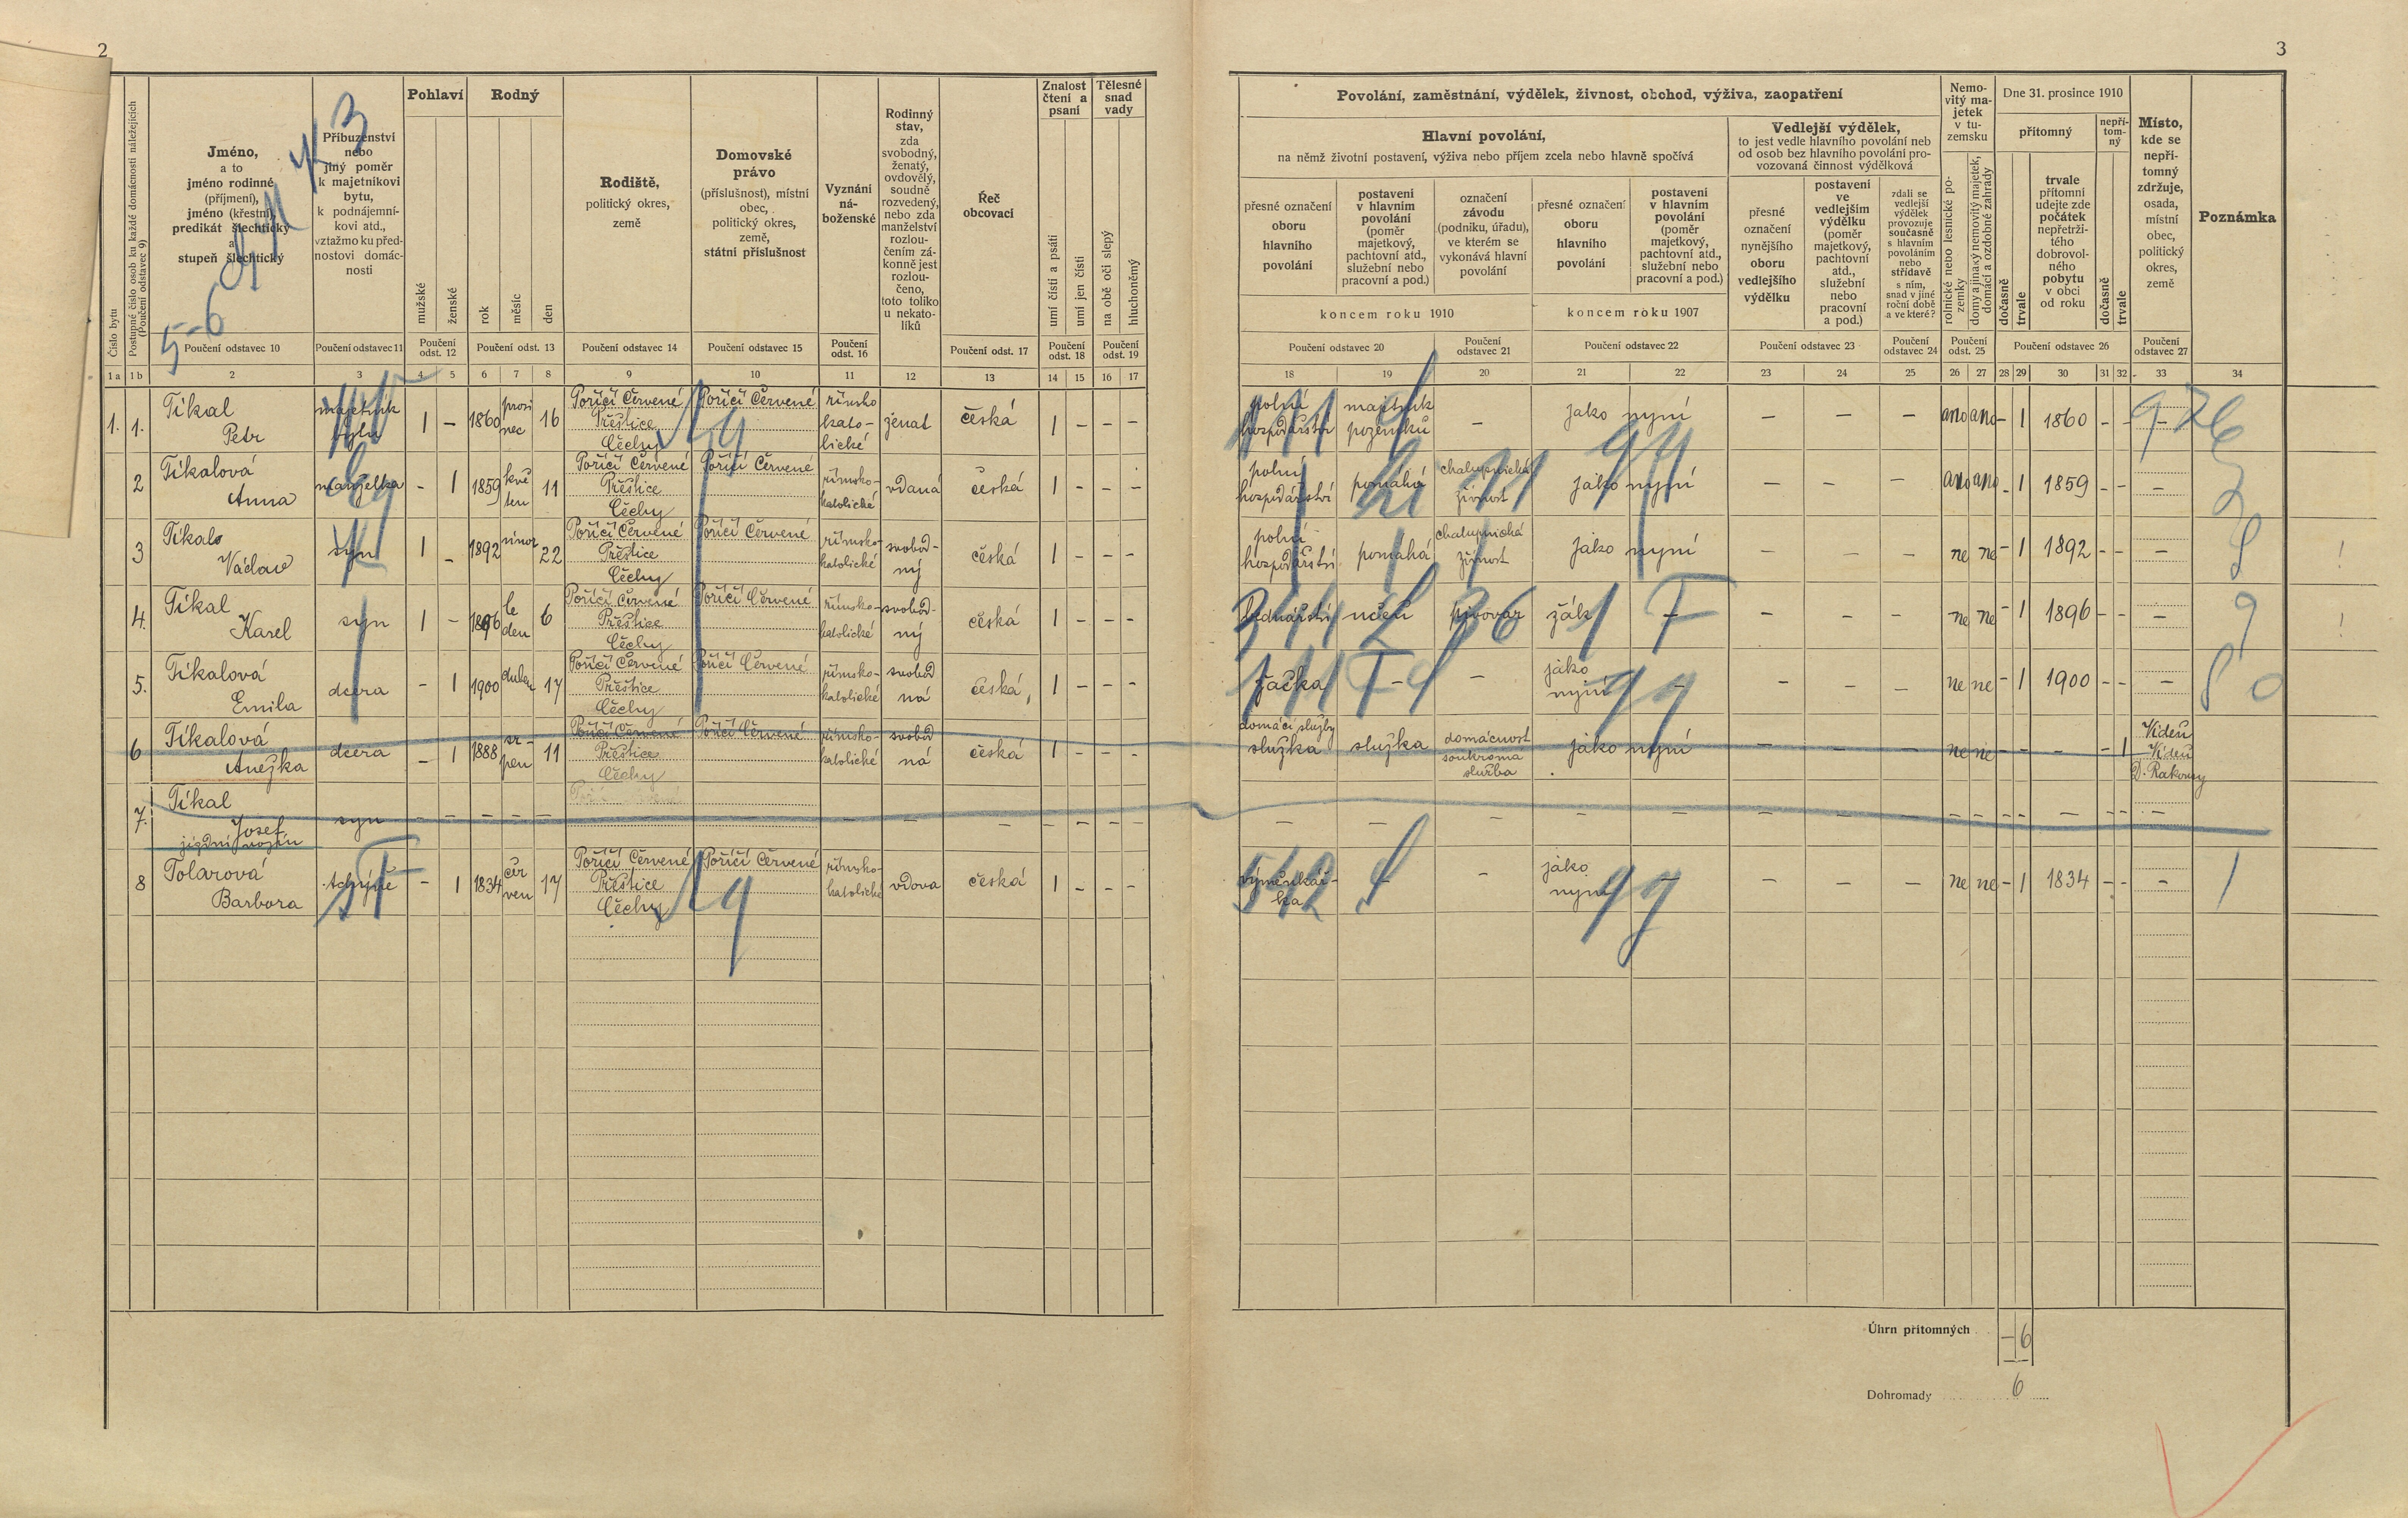 2
3
Číslo bytu
Postupné číslo osob ku každé domácnosti náležejících
(Poučení odstavec 9)
Jméno,
a to
jméno rodinné
(příjmení),
jméno (křestní),
predikát šlechtický
a
stupeň šlechtický
Příbuzenství
nebo
jiný poměr
k majetníkovi
bytu,
k podnájemní-
kovi atd.,
vztažmo ku před-
nostovi domác-
nosti
Pohlaví
mužské
ženské
Rodný
rok
měsíc
den
Rodiště,
politický okres,
země
Domovské
právo
(příslušnost), místní
obec,
politický okres,
země,
státní příslušnost
Vyznání
ná-
boženské
Rodinný
stav,
zda
svobodný,
ženatý,
ovdovělý,
soudně
rozvedený,
nebo zda
manželství
rozlou-
čením zá-
konně jest
rozlou-
čeno,
toto toliko
u nekato-
líků
Řeč
obcovací
Znalost
čtení a
psaní
umí čísti a psáti
umí jen čísti
Tělesné
snad
vady
na obě oči slepý
hluchoněmý
Poučení odstavec 10
Poučení odstavec 11
Poučení
odst. 12
Poučení odst. 13
Poučení odstavec 14
Poučení odstavec 15
Poučení
odst. 16
Poučení odst. 17
Poučení
odst. 18
Poučení
odst. 19
1a 1b 2 3 4 5 6 7 8 9 10 11 12 13 14 15 16 17
Povolání, zaměstnání, výdělek, živnost, obchod, výživa, zaopatření
Hlavní povolání,
na němž životní postavení, výživa nebo příjem zcela nebo hlavně spočívá
přesné označení
oboru
hlavního
povolání
postavení
v hlavním
povolání
(poměr
majetkový,
pachtovní atd.,
služební nebo
pracovní a pod.)
označení
závodu
(podniku, úřadu),
ve kterém se
vykonává hlavní
povolání
přesné označení
oboru
hlavního
povolání
postavení
v hlavním
povolání
(poměr
majetkový,
pachtovní atd.,
služební nebo
pracovní a pod.)
koncem roku 1910
koncem roku 1907
Vedlejší výdělek,
to jest vedle hlavního povolání neb
od osob bez hlavního povolání pro-
vozovaná činnost výdělková
přesné
označení
nynějšího
oboru
vedlejšího
výdělku
postavení
ve
vedlejším
výdělku
(poměr
majetkový,
pachtovní
atd.,
služební
nebo
pracovní
a pod.)
zdali se
vedlejší
výdělek
provozuje
současně
s hlavním
povoláním
nebo
střídavě
s ním,
snad v jiné
roční době
a ve které?
Nemo-
vitý ma-
jetek
v tu-
zemsku
rolnické nebo lesnické po-
zemky
domy a jinaký nemovitý majetek,
domácí a ozdobné zahrady
Dne 31. prosince 1910
přítomný
nepří-
tom-
ný
dočasně
trvale
trvale
přítomní
udejte zde
počátek
nepřetrži-
tého
dobrovol-
ného
pobytu
v obci
od roku
dočasně
trvale
Místo,
kde se
nepří-
tomný
zdržuje,
osada,
místní
obec,
politický
okres,
země
Poznámka
Poučení odstavec 20
Poučení
odstavec 21
Poučení odstavec 22
Poučení odstavec 23
Poučení
odstavec 24
Poučení
odst. 25
Poučení odstavec 26
Poučení
odstavec 27
18 19 20 21 22 23 24 25 26 27 28 29 30 31 32 33 34
5-6
1. 1. Tikal
Petr
majetník
bytu
1 – 1860 prosi
nec 16
Poříčí Červené
Přeštice
Čechy
Poříčí Červené
římsko
kato-
lické
ženat česká 1 – – –
polní
hospodářství
majetník
pozemků
– jako nyní – – – ano ano – 1 1860 – – –
2 Tikalová
Anna
manželka
– 1 1859 kvě
ten 11
Poříčí Červené
Přeštice
Čechy
Poříčí Červené
římsko-
katolické
vdaná česká 1 – – –
polní
hospodářství
pomáhá
chalupnická
živnost
jako nyní – – – ano ano – 1 1859 – – –
3 Tikal
Václav
syn 1 – 1892 únor 22
Poříčí Červené
Přeštice
Čechy
Poříčí Červené
římsko-
katolické
svobod-
ný
česká 1 – – –
polní
hospodářství
pomáhá
chalupnická
živnost
jako nyní – – – ne ne – 1 1892 – – –
4. Tikal
Karel
syn 1 – 1896 le
den 6
Poříčí Červené
Přeštice
Čechy
Poříčí Červené
římsko-
katolické
svobod-
ný
česká 1 – – –
bednářství učeň pivovar žák – – – – ne ne – 1 1896 – – –
5. Tikalová
Emila
dcera – 1 1900 duben 17
Poříčí Červené
Přeštice
Čechy
Poříčí Červené
římsko-
katolické
svobod
ná
česká 1 – – –
žačka – – jako
nyní – – – – ne ne – 1 1900 – – –
6 Tikalová
Anežka
dcera – 1 1888 sr-
pen 11
Poříčí Červené
Přeštice
Čechy
Poříčí Červené
římsko-
katolické
svobod
ná
česká 1 – – –
domácí služby
služka služka
domácnost
soukromá
služba
jako nyní – – – ne ne – – – – 1
Vídeň
Vídeň
D. Rakousy
7. Tikal
Josef
jízdní vojín
syn – – – – –
8 Tolarová
Barbora
tchýně – 1 1834 čer
ven 17
Poříčí Červené
Přeštice
Čechy
Poříčí Červené
římsko-
katolické
vdova česká 1 – – –
výměnkář-
ka
– – jako
nyní – – – – ne ne – 1 1834 – – –
Úhrn přítomných – 6
Dohromady 6